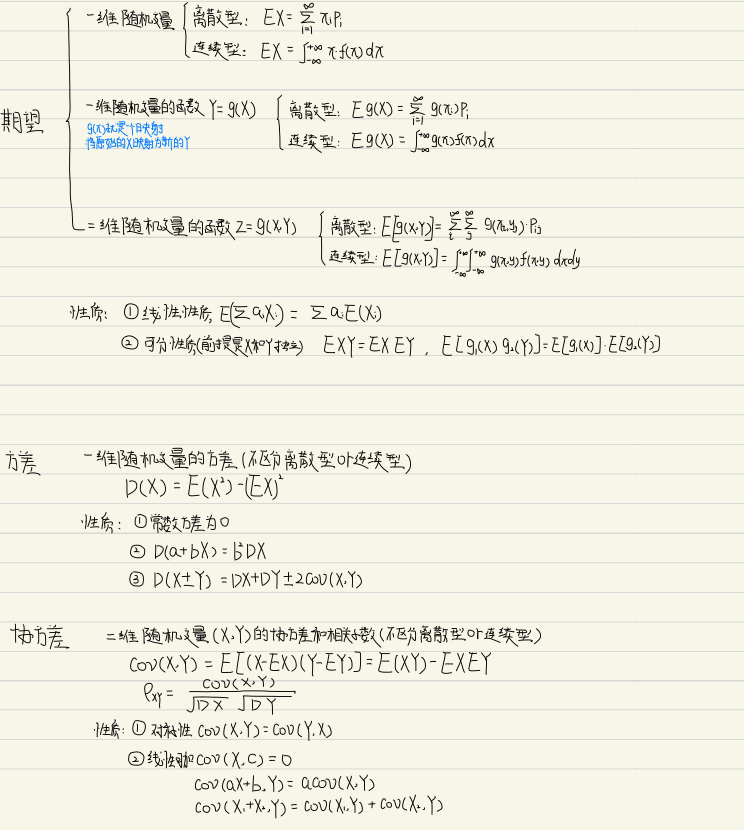 期望
一维随机变量 离散型: EX = ∑_{i=1}^{∞} x_i P_i
连续型: EX = ∫_{-∞}^{+∞} x·f(x) dx
一维随机变量的函数 Y=g(X) 离散型: E g(X) = ∑_{i=1}^{∞} g(x_i) P_i
g(x)就是一个映射
将原始的X映射为新的Y
连续型: E g(X) = ∫_{-∞}^{+∞} g(x) f(x) dx
二维随机变量的函数 Z=g(X,Y) 离散型: E[g(X,Y)] = ∑_i^∞ ∑_j^∞ g(x_i,y_j)·P_ij
连续型: E[g(X,Y)] = ∫_{-∞}^{+∞}∫_{-∞}^{+∞} g(x,y) f(x,y) dxdy
性质: ① 线性性质 E(∑a_i X_i) = ∑ a_i E(X_i)
② 可分性质(前提是X和Y独立) EXY = EX EY , E[g₁(X) g₂(Y)] = E[g₁(X)]·E[g₂(Y)]
方差
一维随机变量的方差(不区分离散型or连续型)
D(X) = E(X²) - (EX)²
性质: ① 常数方差为0
② D(a+bX) = b²DX
③ D(X±Y) = DX+DY±2COV(X,Y)
协方差
二维随机变量(X,Y)的协方差和相关系数(不区分离散型or连续型)
COV(X,Y) = E[(X-EX)(Y-EY)] = E(XY) - EXEY
ρ_XY = COV(X,Y) / √DX √DY
性质: ① 对称性 COV(X,Y) = COV(Y,X)
② COV(X,C) = 0
COV(aX+b,Y) = aCOV(X,Y)
COV(X₁+X₂,Y) = COV(X₁,Y) + COV(X₂,Y)